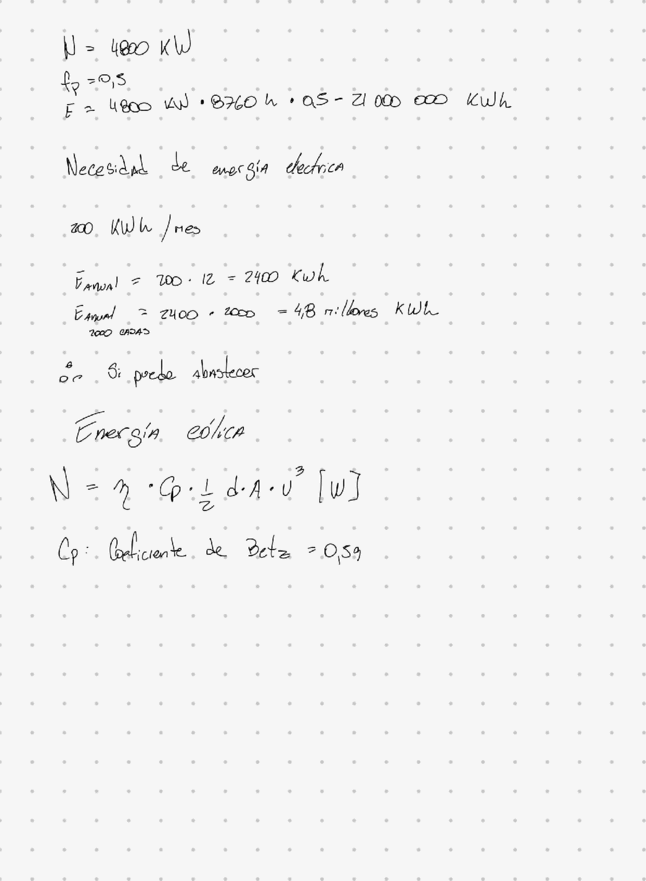 N = 4800 KW
fp = 0,5
E = 4800 KW · 8760 h · 0,5 - 21 000 000 KWh
Necesidad de energía electrica
200 KWh / mes
E ANUAL = 200 · 12 = 2400 KWh
E ANUAL 2000 CASAS = 2400 · 2000 = 4,8 millones KWh
∴ Si puede abastecer
Energía eólica
N = η · Cp · 1/2 d · A · v³ [W]
Cp: Coeficiente de Betz = 0,59